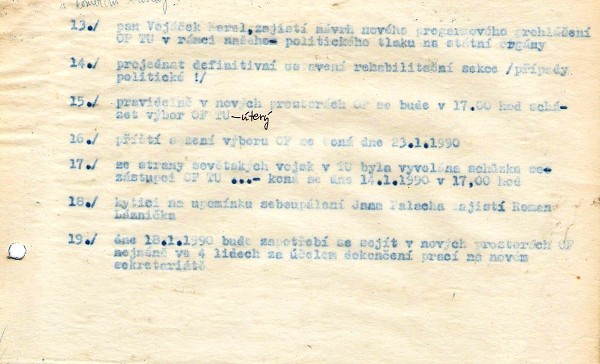 13./ pan Vojáček Karel,zajistí návrh nového programového prohlášení
OF TU v rámci našeho- politického tlaku na státní orgány
14./ projednat definitivní ustavení rehabilitační sekce /případy
politické !/
15./ pravidelně v nových prostorách OF se bude v 17.00 hod schá-
zet výbor OF TU-úterý
16./ příští sezení výboru OF se koná dne 23.1.1990
17./ ze strany sovětských vojsk v TU byla vyvolána schůzka se-
zástupci OF TU ...- koná se dne 14.1.1990 v 17,00 hod
18./ kytici na upomínku sebeupálení Jana Palacha zajistí Roman
Láznička
19./ dne 18.1.1990 bude zapotřebí se sejít v nových prostorách OF
nejméně ve 4 lidech za účelem dokončení prací na novém
sekretariátě